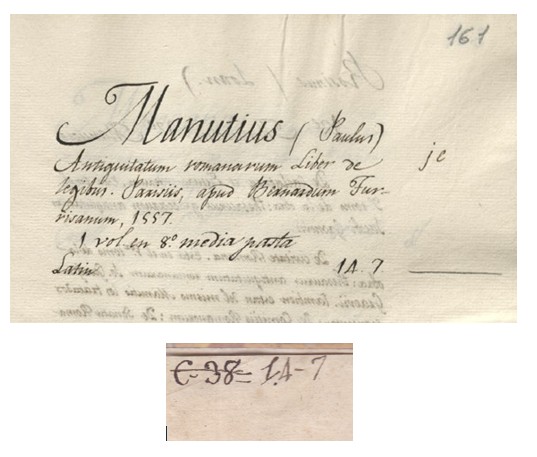 161
Manutius (Paulus)
je
Antiquitatum romanarum Liber de
legibus. Parisiis, apud Bernardum Tur-
risanum, 1557.
1 vol en 8º media pasta
Latin 14. 7
C-38= 14-7